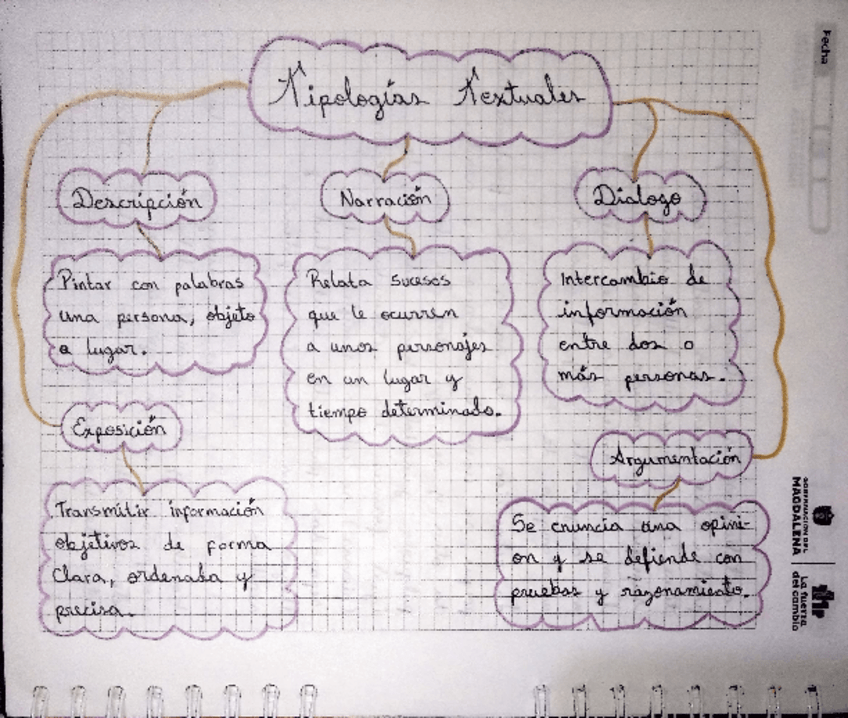 Tipologías Textuales
Descripción
Pintar con palabras
una persona, objeto
o lugar.
Narración
Relata sucesos
que le ocurren
a unos personajes
en un lugar y
tiempo determinado.
Dialogo
Intercambio de
información
entre dos o
más personas.
Exposición
Transmitir información
objetivos de forma
Clara, ordenada y
precisa.
Argumentación
Se enuncia una opini-
on y se defiende con
pruebas y razonamiento.
Fecha
GOBERNACIÓN DEL
MAGDALENA
La fuerza
del cambio